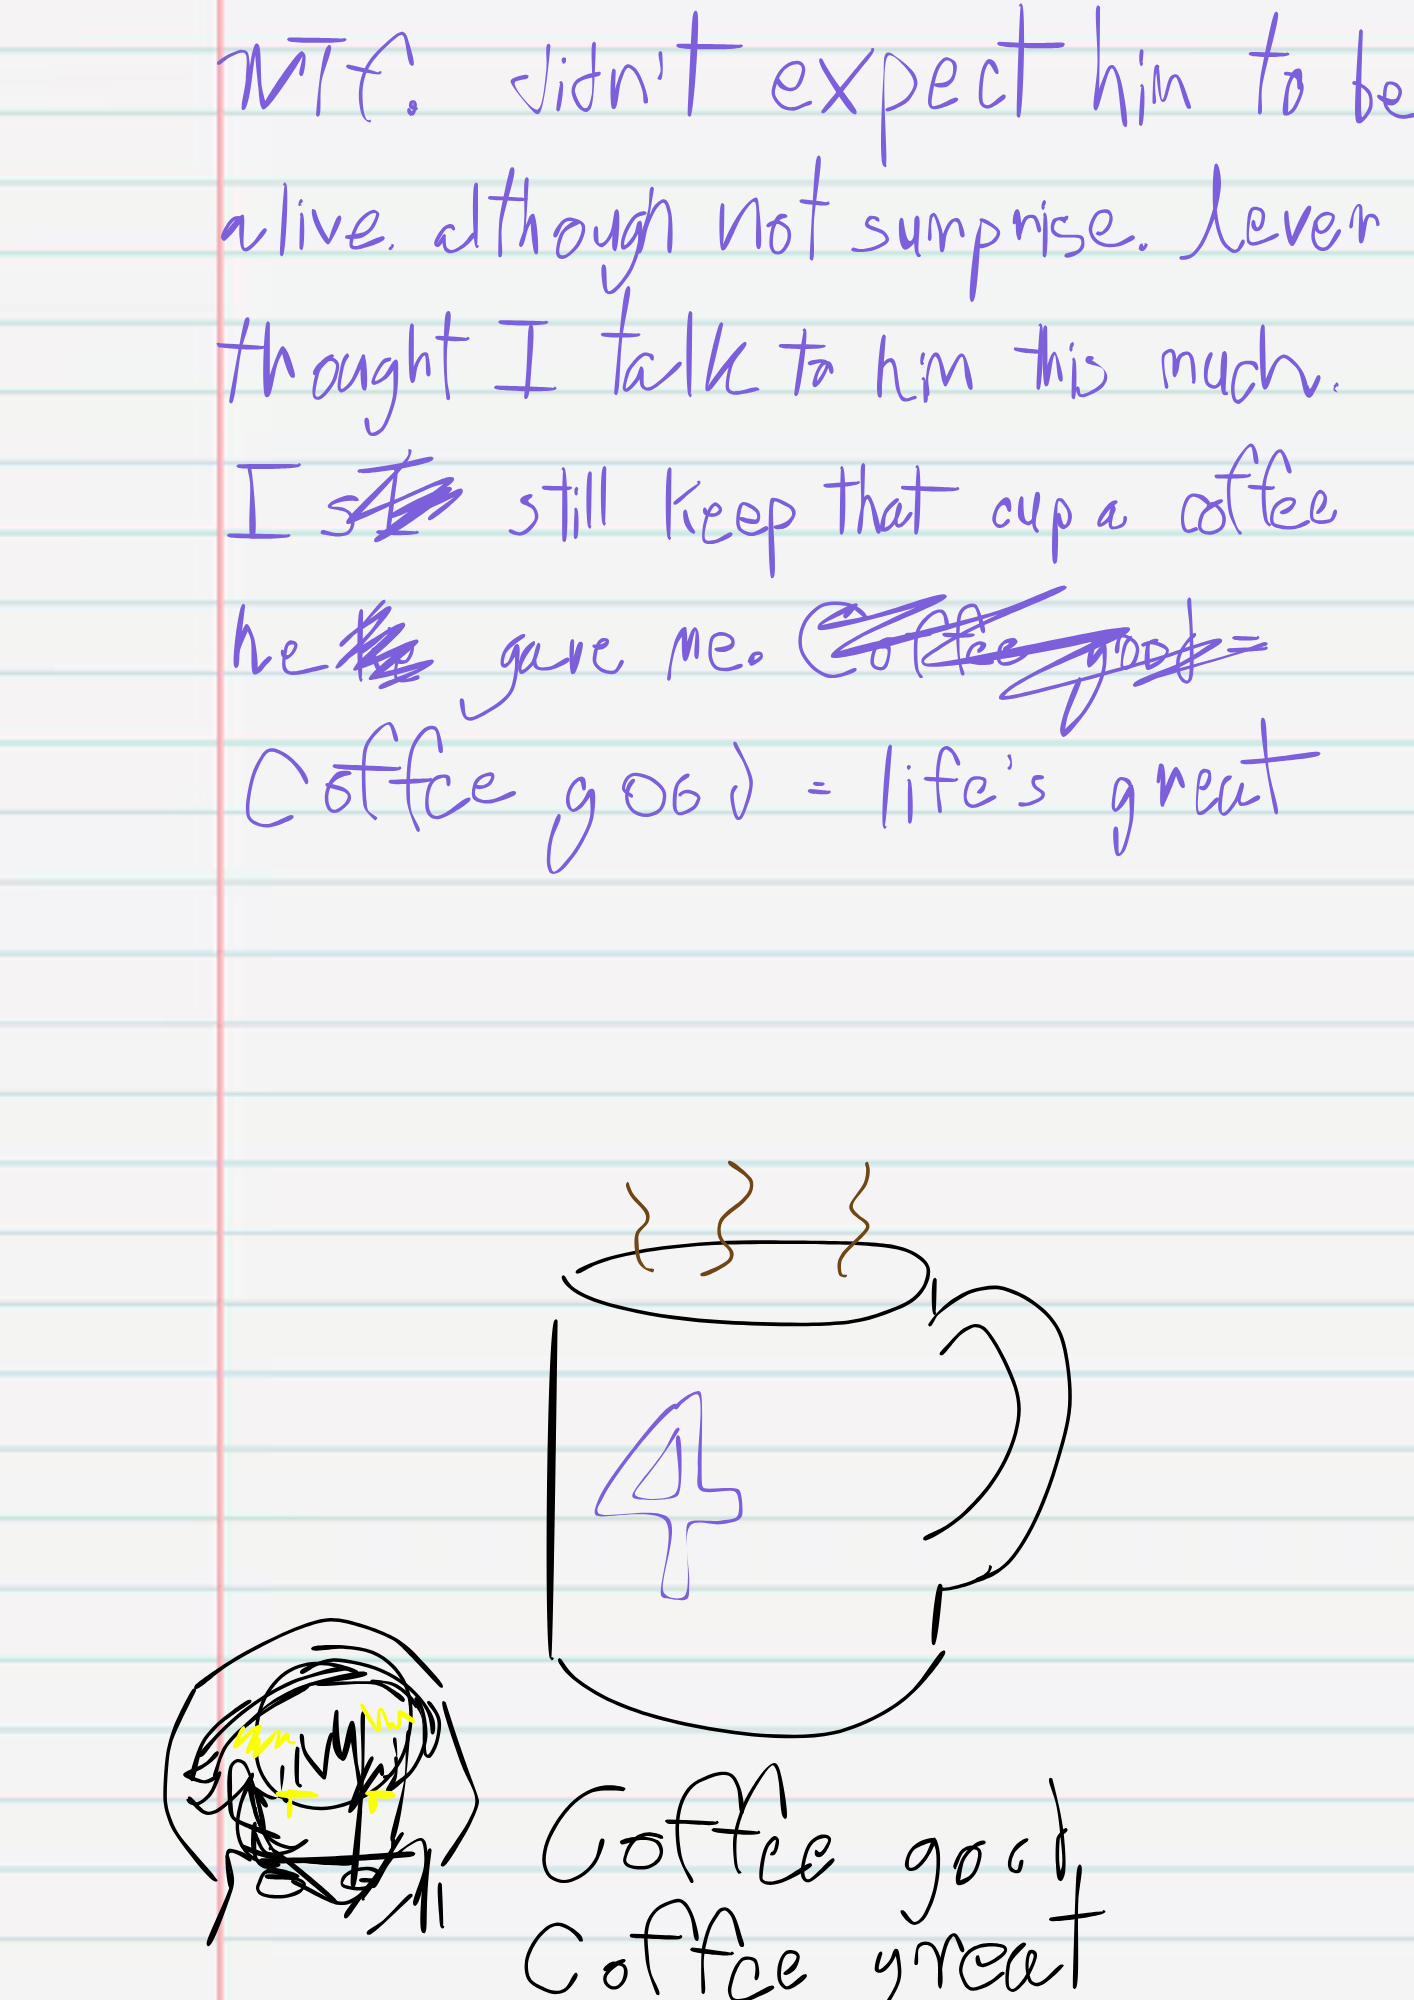 WTF. didn't expect him to be
alive. although not surprise. Never
thought I talk to him this much.
I st still keep that cup a coffee
he gave me. Coffee good =
Coffee good = life's great
4
Coffee good
Coffee great